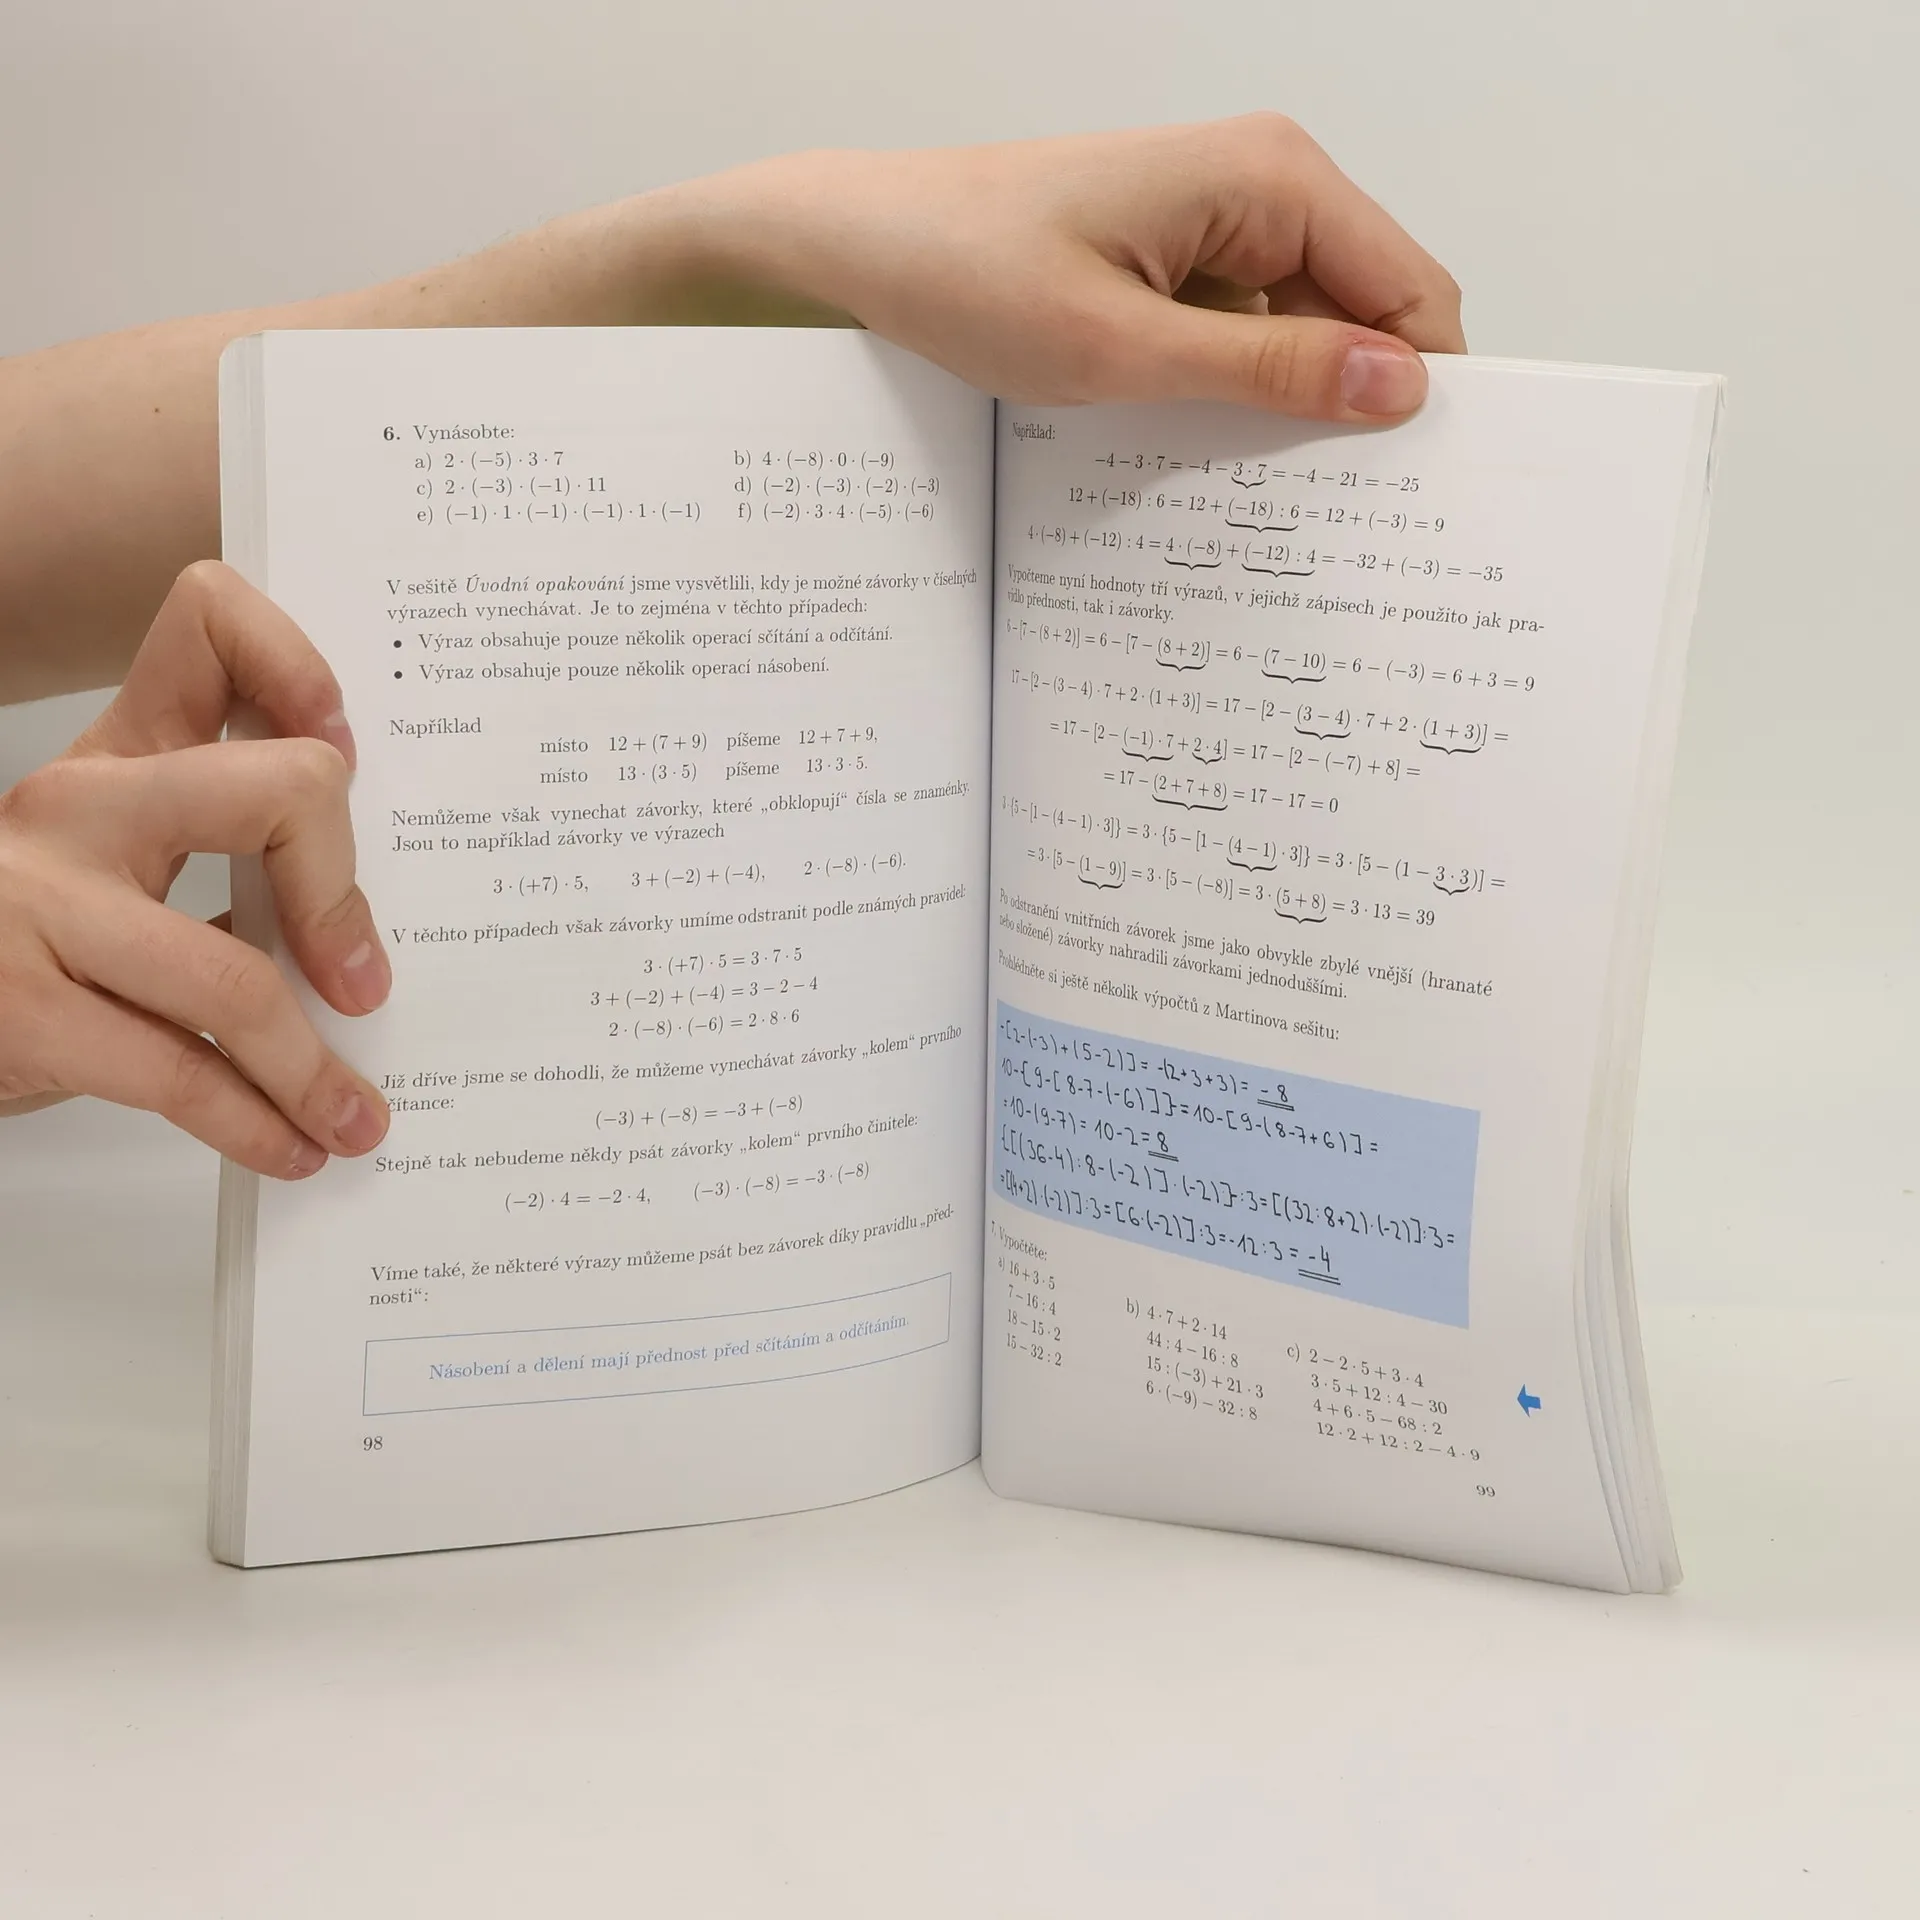 6. Vynásobte:
a) 2 · (−5) · 3 · 7 b) 4 · (−8) · 0 · (−9)
c) 2 · (−3) · (−1) · 11 d) (−2) · (−3) · (−2) · (−3)
e) (−1) · 1 · (−1) · (−1) · 1 · (−1) f) (−2) · 3 · 4 · (−5) · (−6)
V sešitě Úvodní opakování jsme vysvětlili, kdy je možné závorky v číselných
výrazech vynechávat. Je to zejména v těchto případech:
• Výraz obsahuje pouze několik operací sčítání a odčítání.
• Výraz obsahuje pouze několik operací násobení.
Například
místo 12 + (7 + 9) píšeme 12 + 7 + 9,
místo 13 · (3 · 5) píšeme 13 · 3 · 5.
Nemůžeme však vynechat závorky, které „obklopují“ čísla se znaménky.
Jsou to například závorky ve výrazech
3 · (+7) · 5, 3 + (−2) + (−4), 2 · (−8) · (−6).
V těchto případech však závorky umíme odstranit podle známých pravidel:
3 · (+7) · 5 = 3 · 7 · 5
3 + (−2) + (−4) = 3 − 2 − 4
2 · (−8) · (−6) = 2 · 8 · 6
Již dříve jsme se dohodli, že můžeme vynechávat závorky „kolem“ prvního
čítance:
(−3) + (−8) = −3 + (−8)
Stejně tak nebudeme někdy psát závorky „kolem“ prvního činitele:
(−2) · 4 = −2 · 4, (−3) · (−8) = −3 · (−8)
Víme také, že některé výrazy můžeme psát bez závorek díky pravidlu „před-
nosti“:
Násobení a dělení mají přednost před sčítáním a odčítáním.
98
Například:
−4 − 3 · 7 = −4 − 3 · 7 = −4 − 21 = −25
12 + (−18) : 6 = 12 + (−18) : 6 = 12 + (−3) = 9
4 · (−8) + (−12) : 4 = 4 · (−8) + (−12) : 4 = −32 + (−3) = −35
Vypočteme nyní hodnoty tří výrazů, v jejichž zápisech je použito jak pra-
vidlo přednosti, tak i závorky.
6 − [7 − (8 + 2)] = 6 − [7 − (8 + 2)] = 6 − (7 − 10) = 6 − (−3) = 6 + 3 = 9
17 − [2 − (3 − 4) · 7 + 2 · (1 + 3)] = 17 − [2 − (3 − 4) · 7 + 2 · (1 + 3)] =
= 17 − [2 − (−1) · 7 + 2 · 4] = 17 − [2 − (−7) + 8] =
= 17 − (2 + 7 + 8) = 17 − 17 = 0
3 · {5 − [1 − (4 − 1) · 3]} = 3 · {5 − [1 − (4 − 1) · 3]} = 3 · [5 − (1 − 3 · 3)] =
= 3 · [5 − (1 − 9)] = 3 · [5 − (−8)] = 3 · (5 + 8) = 3 · 13 = 39
Po odstranění vnitřních závorek jsme jako obvykle zbylé vnější (hranaté
nebo složené) závorky nahradili závorkami jednoduššími.
Prohlédněte si ještě několik výpočtů z Martinova sešitu:
-[2-(-3)+(5-2)] = -(2+3+3) = -8
10-{9-[8-7-(-6)]} = 10-[9-(8-7+6)] =
= 10-(9-7) = 10-2 = 8
{[(36-4):8-(-2)]·(-2)}:3 = [(32:8+2)·(-2)]:3 =
= [(4+2)·(-2)]:3 = [6·(-2)]:3 = -12:3 = -4
7. Vypočtěte:
a) 16 + 3 · 5 b) 4 · 7 + 2 · 14 c) 2 − 2 · 5 + 3 · 4
7 − 16 : 4 44 : 4 − 16 : 8 3 · 5 + 12 : 4 − 30
18 − 15 · 2 15 : (−3) + 21 · 3 4 + 6 · 5 − 68 : 2
15 − 32 : 2 6 · (−9) − 32 : 8 12 · 2 + 12 : 2 − 4 · 9
99